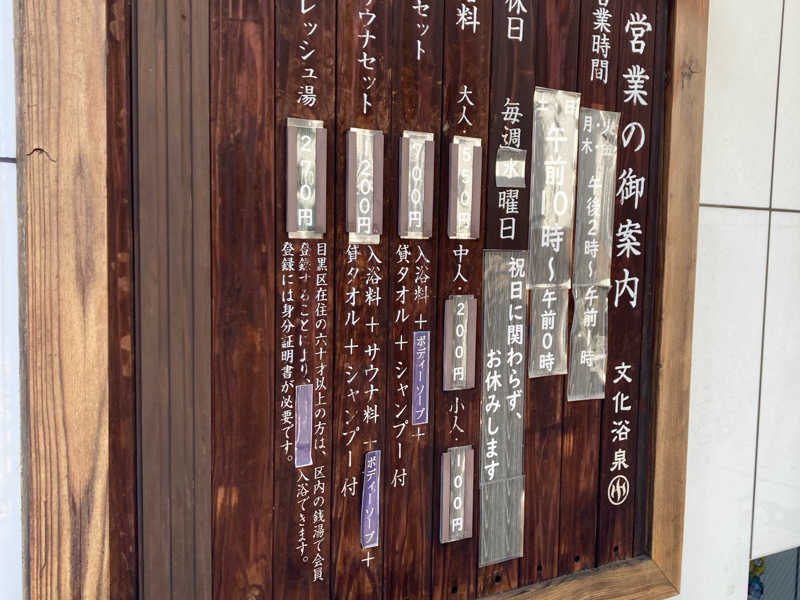 営業の御案内
文化浴泉
営業時間
月・木
火・金
午後2時〜午前1時
土 日
午前10時〜午前0時
休日
毎週水曜日
祝日に関わらず、
お休みします
料
大人・550円
中人・200円
小人・100円
セット
700円
入浴料+ボディーソープ+
貸タオル+シャンプー付
サウナセット
1200円
入浴料+サウナ料+ボディーソープ+
貸タオル+シャンプー付
レッシュ湯
270円
目黒区在住の六十才以上の方は、区内の銭湯で会員
登録することにより、入浴できます。
登録には身分証明書が必要です。